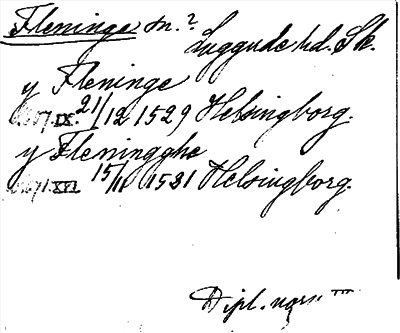 Fleninge sn.? Luggude hd. Sk.
y Fleninge
IX. 21/12 1529 Helsingborg.
y Fleningghe
XVI. 15/11 1531 Helsingborg.
Dipl.